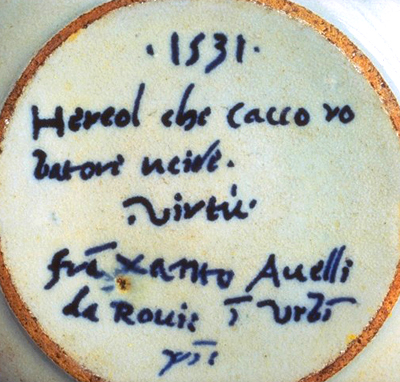 · 1531 ·
Hercol che cacco ro
batore ucide.
virtú.
frã Xanto Auelli
da Rouic ĩ Urbĩ